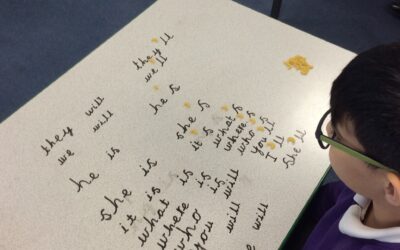 they will
we will
he is
she is
it is
what is
where is
who is
you will
will
will
they'll
we'll
he's
she's
it's
what's
where's
who's
you'll
I'll
She'll